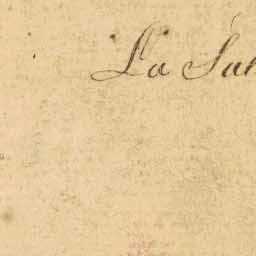 La Sal